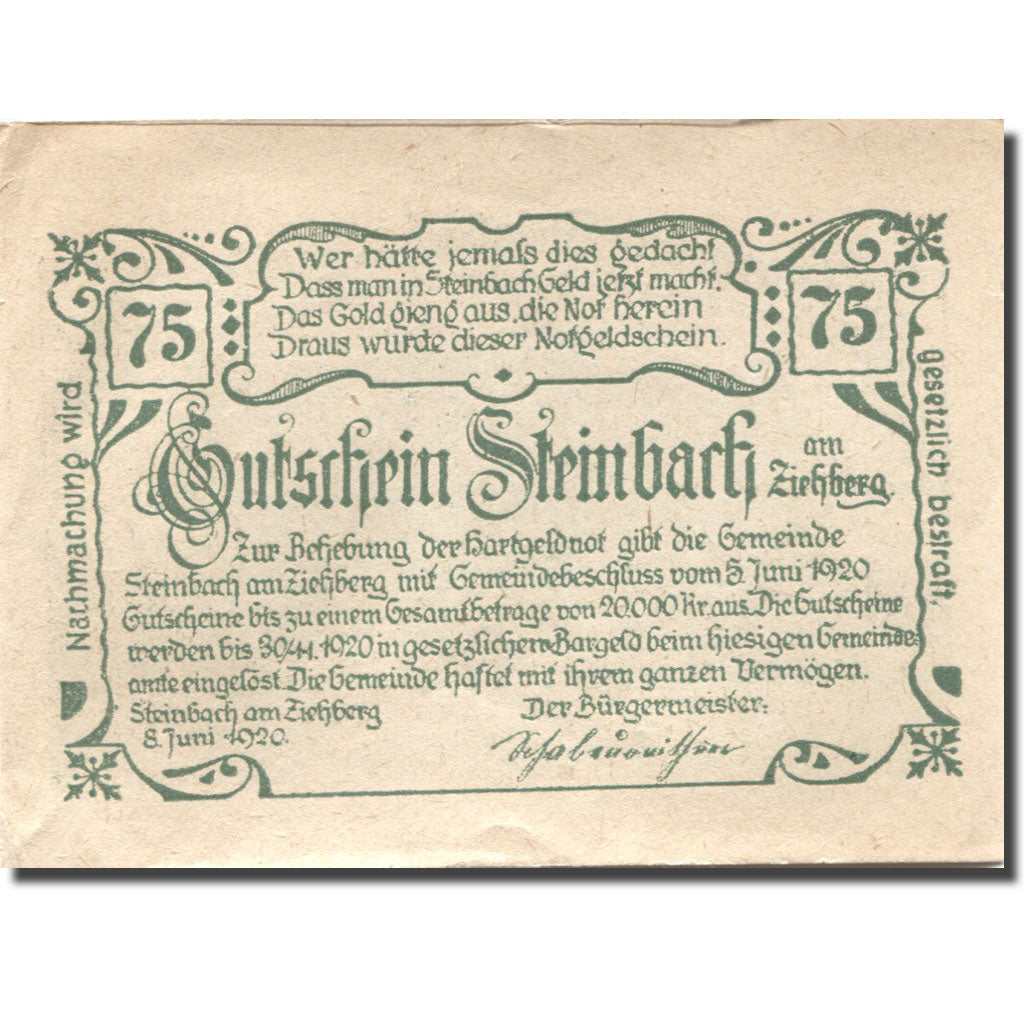 Wer hätte jemals dies gedacht
Dass man in Steinbach Geld jetzt macht.
Das Gold gieng aus, die Not herein
Draus wurde dieser Notgeldschein.
75
75
Nachmachung wird
gesetzlich bestraft.
Gutschein Steinbach am Ziehberg.
Zur Behebung der Hartgeldnot gibt die Gemeinde
Steinbach am Ziehberg mit Gemeindebeschluss vom 5. Juni 1920
Gutscheine bis zu einem Gesamtbetrage von 20.000 Kr. aus. Die Gutscheine
werden bis 30/11. 1920 in gesetzlichem Bargeld beim hiesigen Gemeinde-
amte eingelöst. Die Gemeinde haftet mit ihrem ganzen Vermögen.
Steinbach am Ziehberg
8. Juni 1920.
Der Bürgermeister: